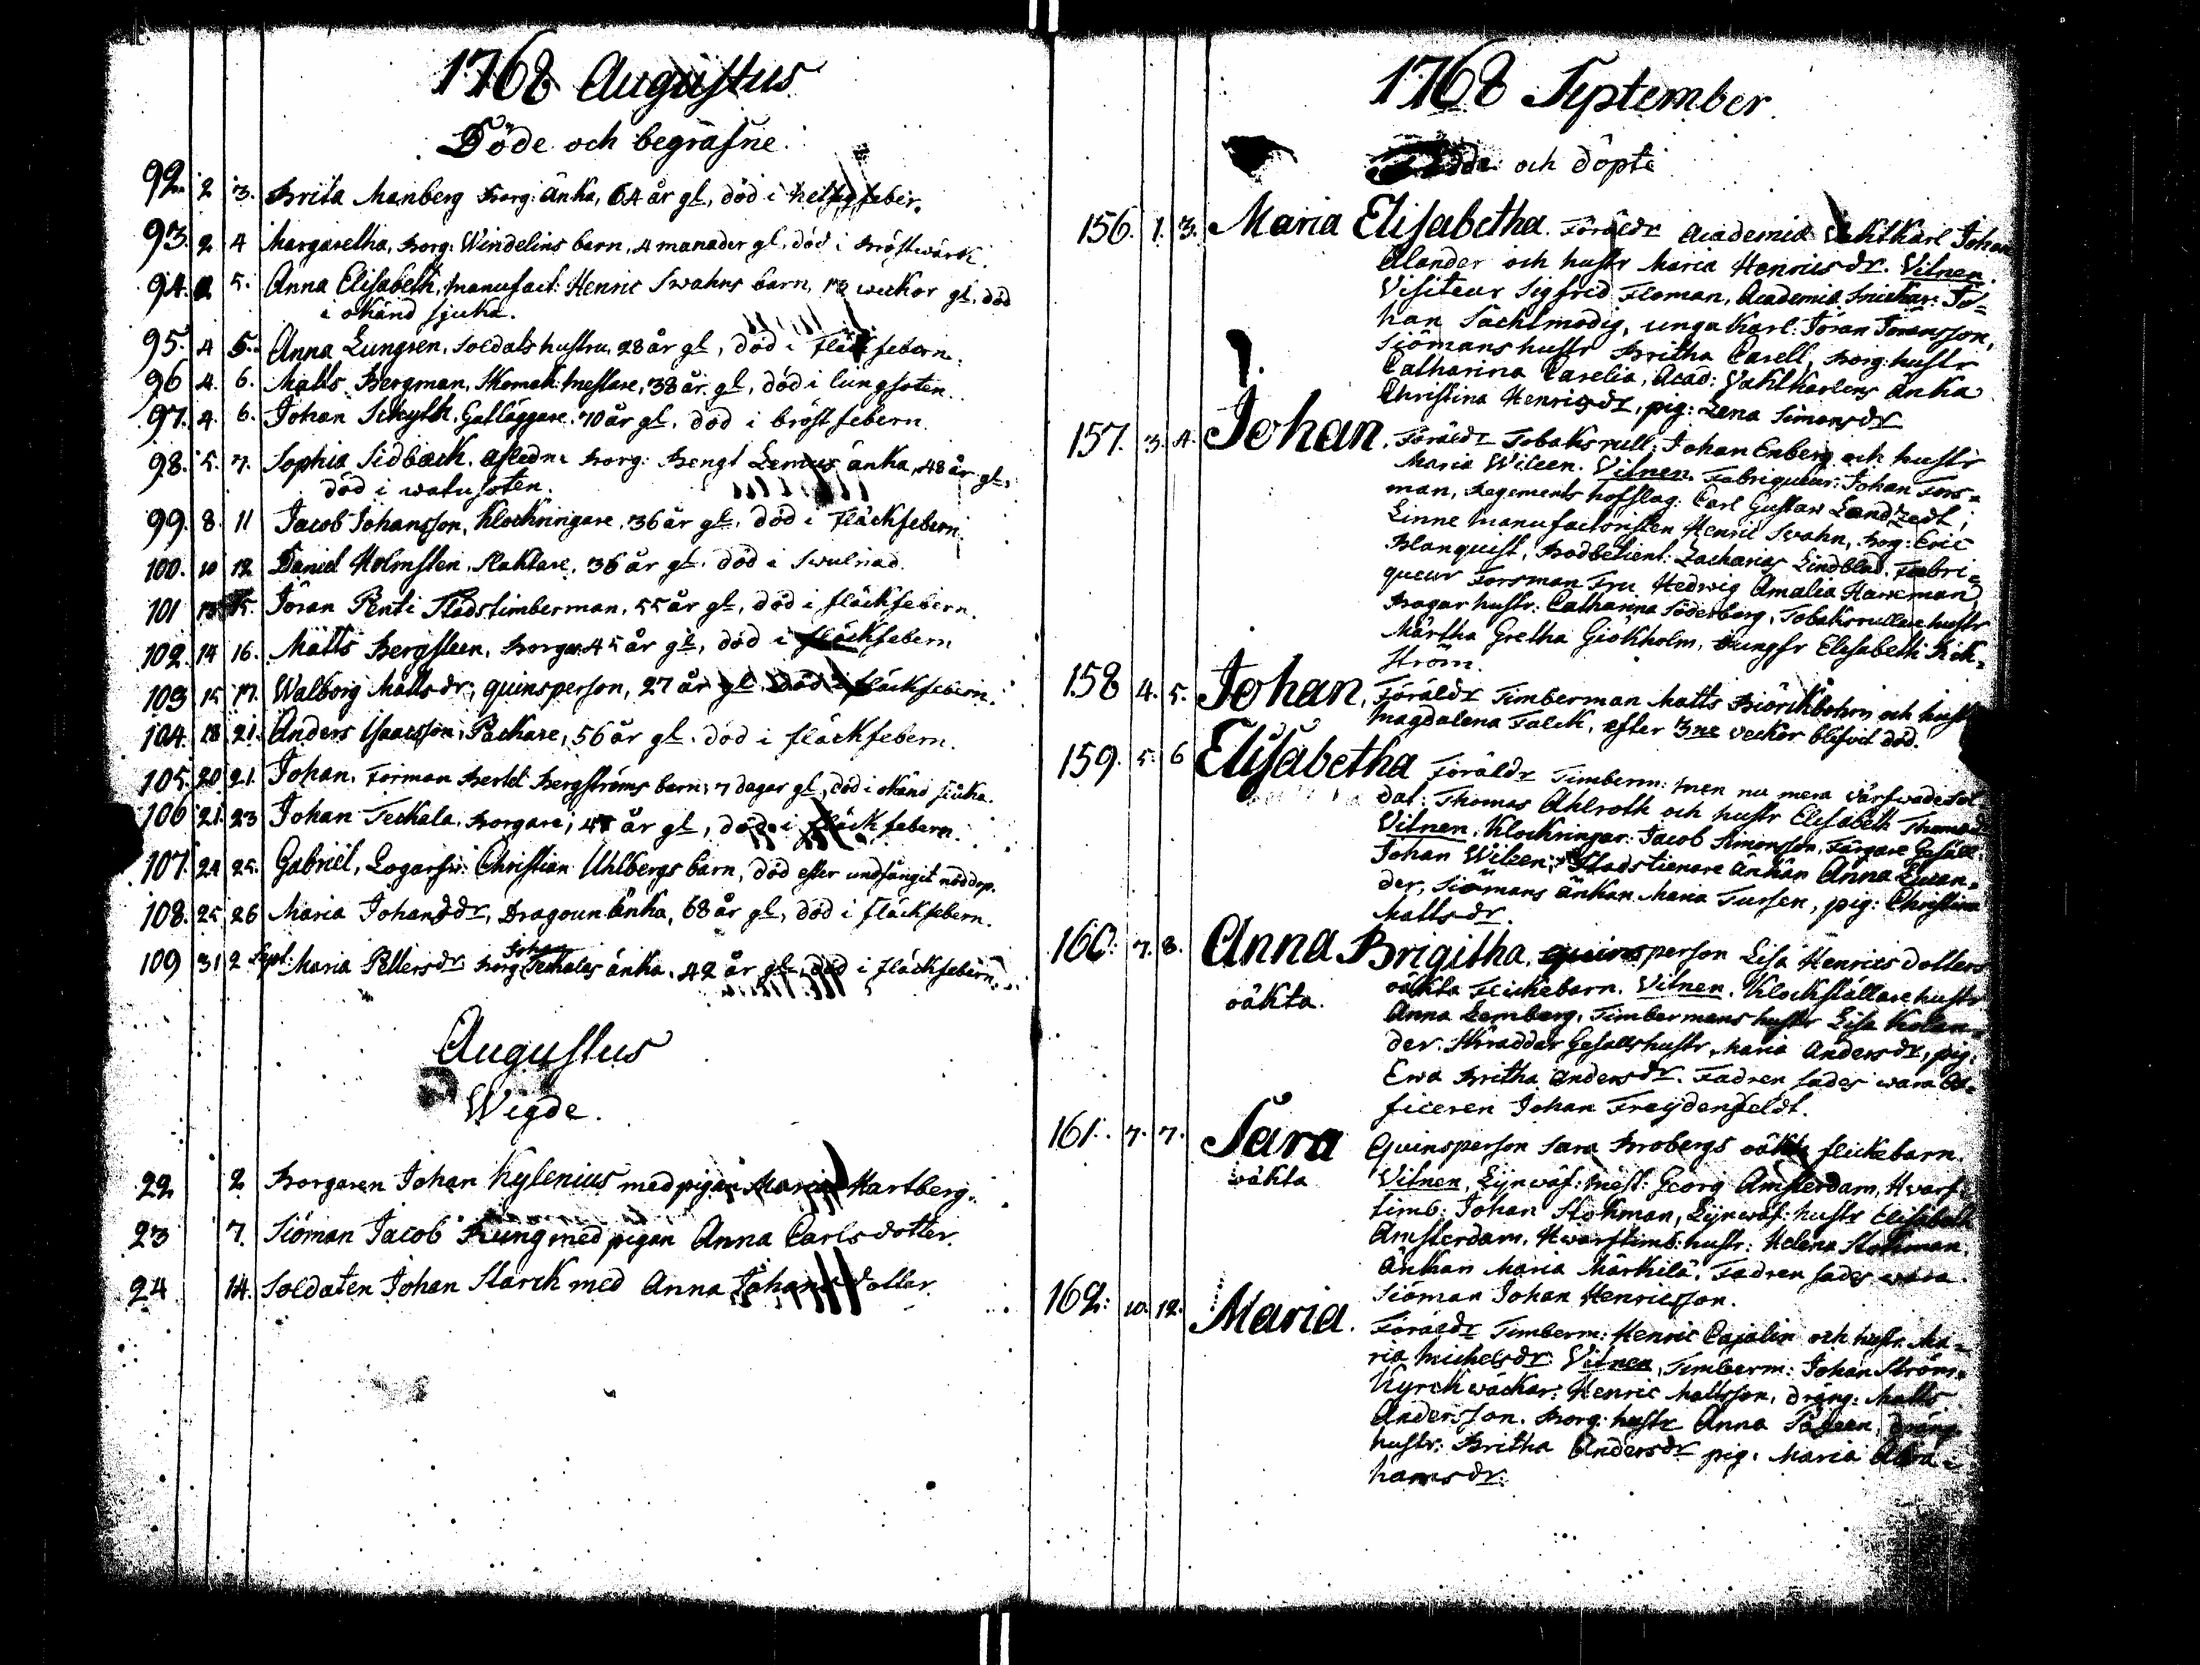 1768 Augustus
Döde och begrafne.
92. 2 3. Brita Manberg Borg: änka, 64 år gl, död i hetsig feber.
93. 2 4 Margaretha, Borg: Windelins barn, 4 månader gl, död i Bröstwärk.
94. 2 5. Anna Elisabeth, manufact: Henric Swahns barn, 12 weckor gl, död
i okänd sjuka.
95. 4 5. Anna Lungren, Soldats hustru, 28 år gl, död i Fläckfebern.
96 4. 6. Matts Bergman, Skomak: mestare, 38 år gl, död i lungsoten.
97. 4. 6. Johan Schylth. Gatläggare. 70 år gl. död i bröstfebern.
98. 5. 7. Sophia Sidbäck. afledne Borg: Bengt änka, 48 år gl,
död i watusoten.
99. 8. 11 Jacob Johansson, Klockringare, 36 år gl, död i Fläckfebern.
100. 10 12 Daniel Holmsten, Slaktare, 36 år gl. död i Swulnad.
101 13 15. Jöran Penti Stadstimberman, 55 år gl, död i fläckfebern.
102. 14 16. Matts Bergsteen, Borgar. 45 år gl, död i fläckfebern
103 15 17. Walborg Mattsdr, quinsperson, 27 år gl. död i fläckfebern.
104. 18 21. Anders Isaacsson, Packare, 56 år gl. död i fläckfebern.
105. 20 21. Johan, Forman Bertel Bergströms barn, 7 dagar gl, död i okänd siuka.
106 21. 23 Johan Teckala, Borgare, 47 år gl, död i fläckfebern.
107. 24 25. Gabriel, Logarfw: Christian Uhlbergs barn, död efter undfångit nöddop.
108. 25 26 Maria Johansdr, Dragoun änka, 68 år gl, död i fläckfebern.
Johan
109 31 2 Sept: Maria Pettersdr Borg: Teckalas änka, 42 år gl, död i fläckfebern.
Augustus
Wigde.
22 2 Borgaren Johan Kylenius med pigan Maria Hartberg.
23 7. Siöman Jacob Kung med pigan Anna Carlsdotter.
24 14. Soldaten Johan Starck med Anna Johansdotter.
1768 September.
Födde och döpte
156. 1. 3. Maria Elisabetha. Föräldr Academiæ Vaktkarl Johan
Alander och hustr Maria Henricsdr. Vitnen.
Visiteur Sigfrid Floman, Academiæ Snickar: Jo-
han Sachtmodig, unga Karl: Jöran Jöransson,
Siömans hustr Britha Carell, Borg: hustr
Catharina Carelia, Acad: Vaktkarlens änka
Christina Henricsdr, pig: Lena Simonsdr
157. 3. 4. Johan. Föräldr Tobaksrull: Johan Enberg och hustr
Maria Wileen. Vitnen. Fabriqueur: Johan Fors-
man, Regements hofslag: Carl Gustav Landzedt,
Linne manufactoristen Henric Swahn, Borg: Eric
Blanquist, Bodbetient: Zacharias Lindblad. Fabri-
queur Forsman Fru Hedwig Amalia Haveman,
Bragar hustr: Catharina Söderborg, Tobaksrullare hustr
Märtha Gretha Giökholm, Jungfr Elisabeth Kek-
ström.
158 4. 5. Johan, Föräldr Timberman Matts Biörkbohm och hustr
Magdalena Falck, efter 3ne veckor blifvit död.
159. 5. 6 Elisabetha Föräldr Timberm: men nu mera värfwade Sol
dat: Thomas Ahlroth och hustr Elisabeth Thomasdr
Vitnen. Klockringar: Jacob Simonsson, Färgare Gesäll:
Johan Wileen, Stadstienare änkan Anna Ewan-
der, Siömans änkan Maria Tursen, pig: Christina
Mattsdr.
160. 7. 8. Anna Brigitha, quinsperson Lisa Henrics dotters
oäkta. oäkta Flickebarn. Vitnen. Klockställare hustr
Anna Lemberg, Timbermans hustr Lisa Kolan-
der. Skräddar Gesälls hustr Maria Andersdr, pig:
Ewa Britha Andersdr. Fadren sades wara Of-
ficeren Johan Freydenfeldt.
161. 7. 7. Sara Quinsperson Sara Brobergs oäkta flickebarn.
oäkta Vitnen, Lijnwäf: mest: Georg Amsterdam, Hvarfs-
timb: Johan Stokman, Lijnwäf: hustr Elisabeth
Amsterdam, Hwarfstimb: hustr: Helena Stokman.
änkan Maria Märkilä. Fadren sades wara
Siöman Johan Henricsson.
162. 10. 12. Maria. Föräldr Timberm: Henric Cajalin och hustr Ma-
ria Michelsdr. Vitnen, Timberm: Johan Ström.
Kyrckwäckar: Henric Mattsson, dräng: Matts
Andersson. Borg: hustr Anna dräng
hustr: Britha Andersdr pig: Maria Abra-
hamsdr.